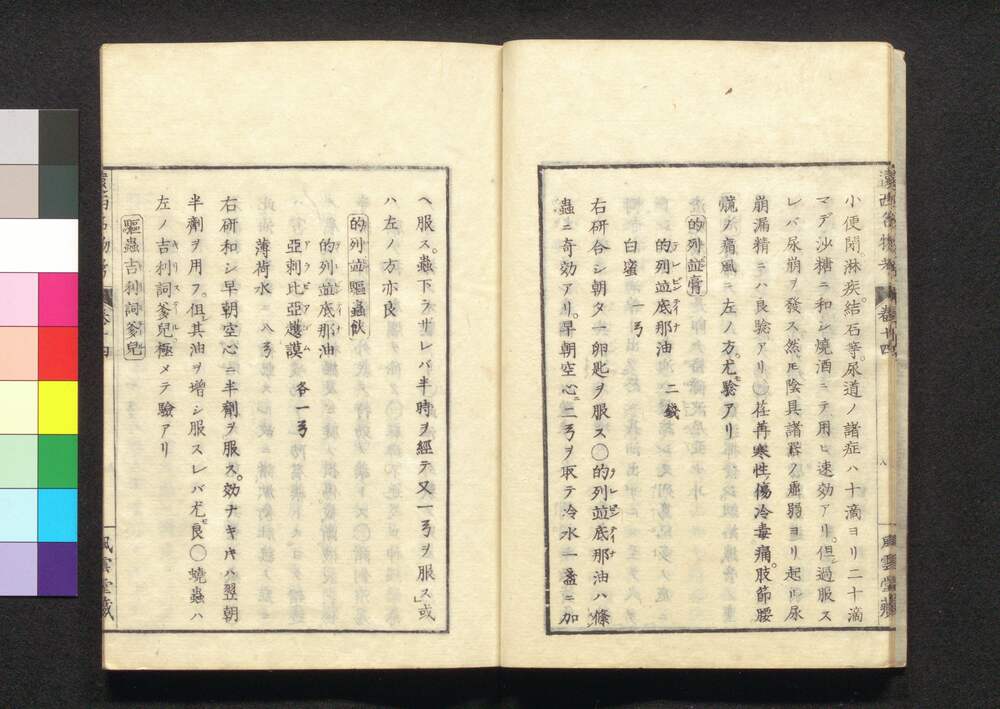 小便閉淋疾。結石等。尿道ノ諸症ハ十滴ヨリ二十滴
マデ沙糖ニ和シ燒酒ニテ用ヒ速効アリ。但過服ス
レバ尿崩ヲ發ス然𪜈陰具諸器ノ虚弱ヨリ起ル尿
崩漏精ニハ良驗アリ○荏苒寒性ノ傷冷毒痛。肢節腰
髖ノ痛風ニ左ノ方。尤驗アリ
的列並膏
的列並底那油 二錢
白蜜 一弓
右研合シ朝夕一卵匙ヲ服ス○的列並底那油ハ絛
蟲ニ奇効アリ。早朝空心ニ二弓ヲ取テ冷水一盞ニ加
遠西名物考 卷廿四
八
風雲堂藏
ヘ服ス。蟲下ラザレバ半時ヲ經テ又一弓ヲ服ス」或
ハ左ノ方亦良
的列並驅蟲飲
的列並底那油
亞剌比亞護謨 各一弓
薄荷水 八弓
右研和シ早朝空心ニ半劑ヲ服ス。効ナキ片ハ翌朝
半劑ヲ用フ。但其油ヲ増シ服スレバ尤良○蟯蟲ハ
左ノ吉利詞爹兒極メテ驗アリ
驅蟲吉利詞爹兒
風雲堂藏